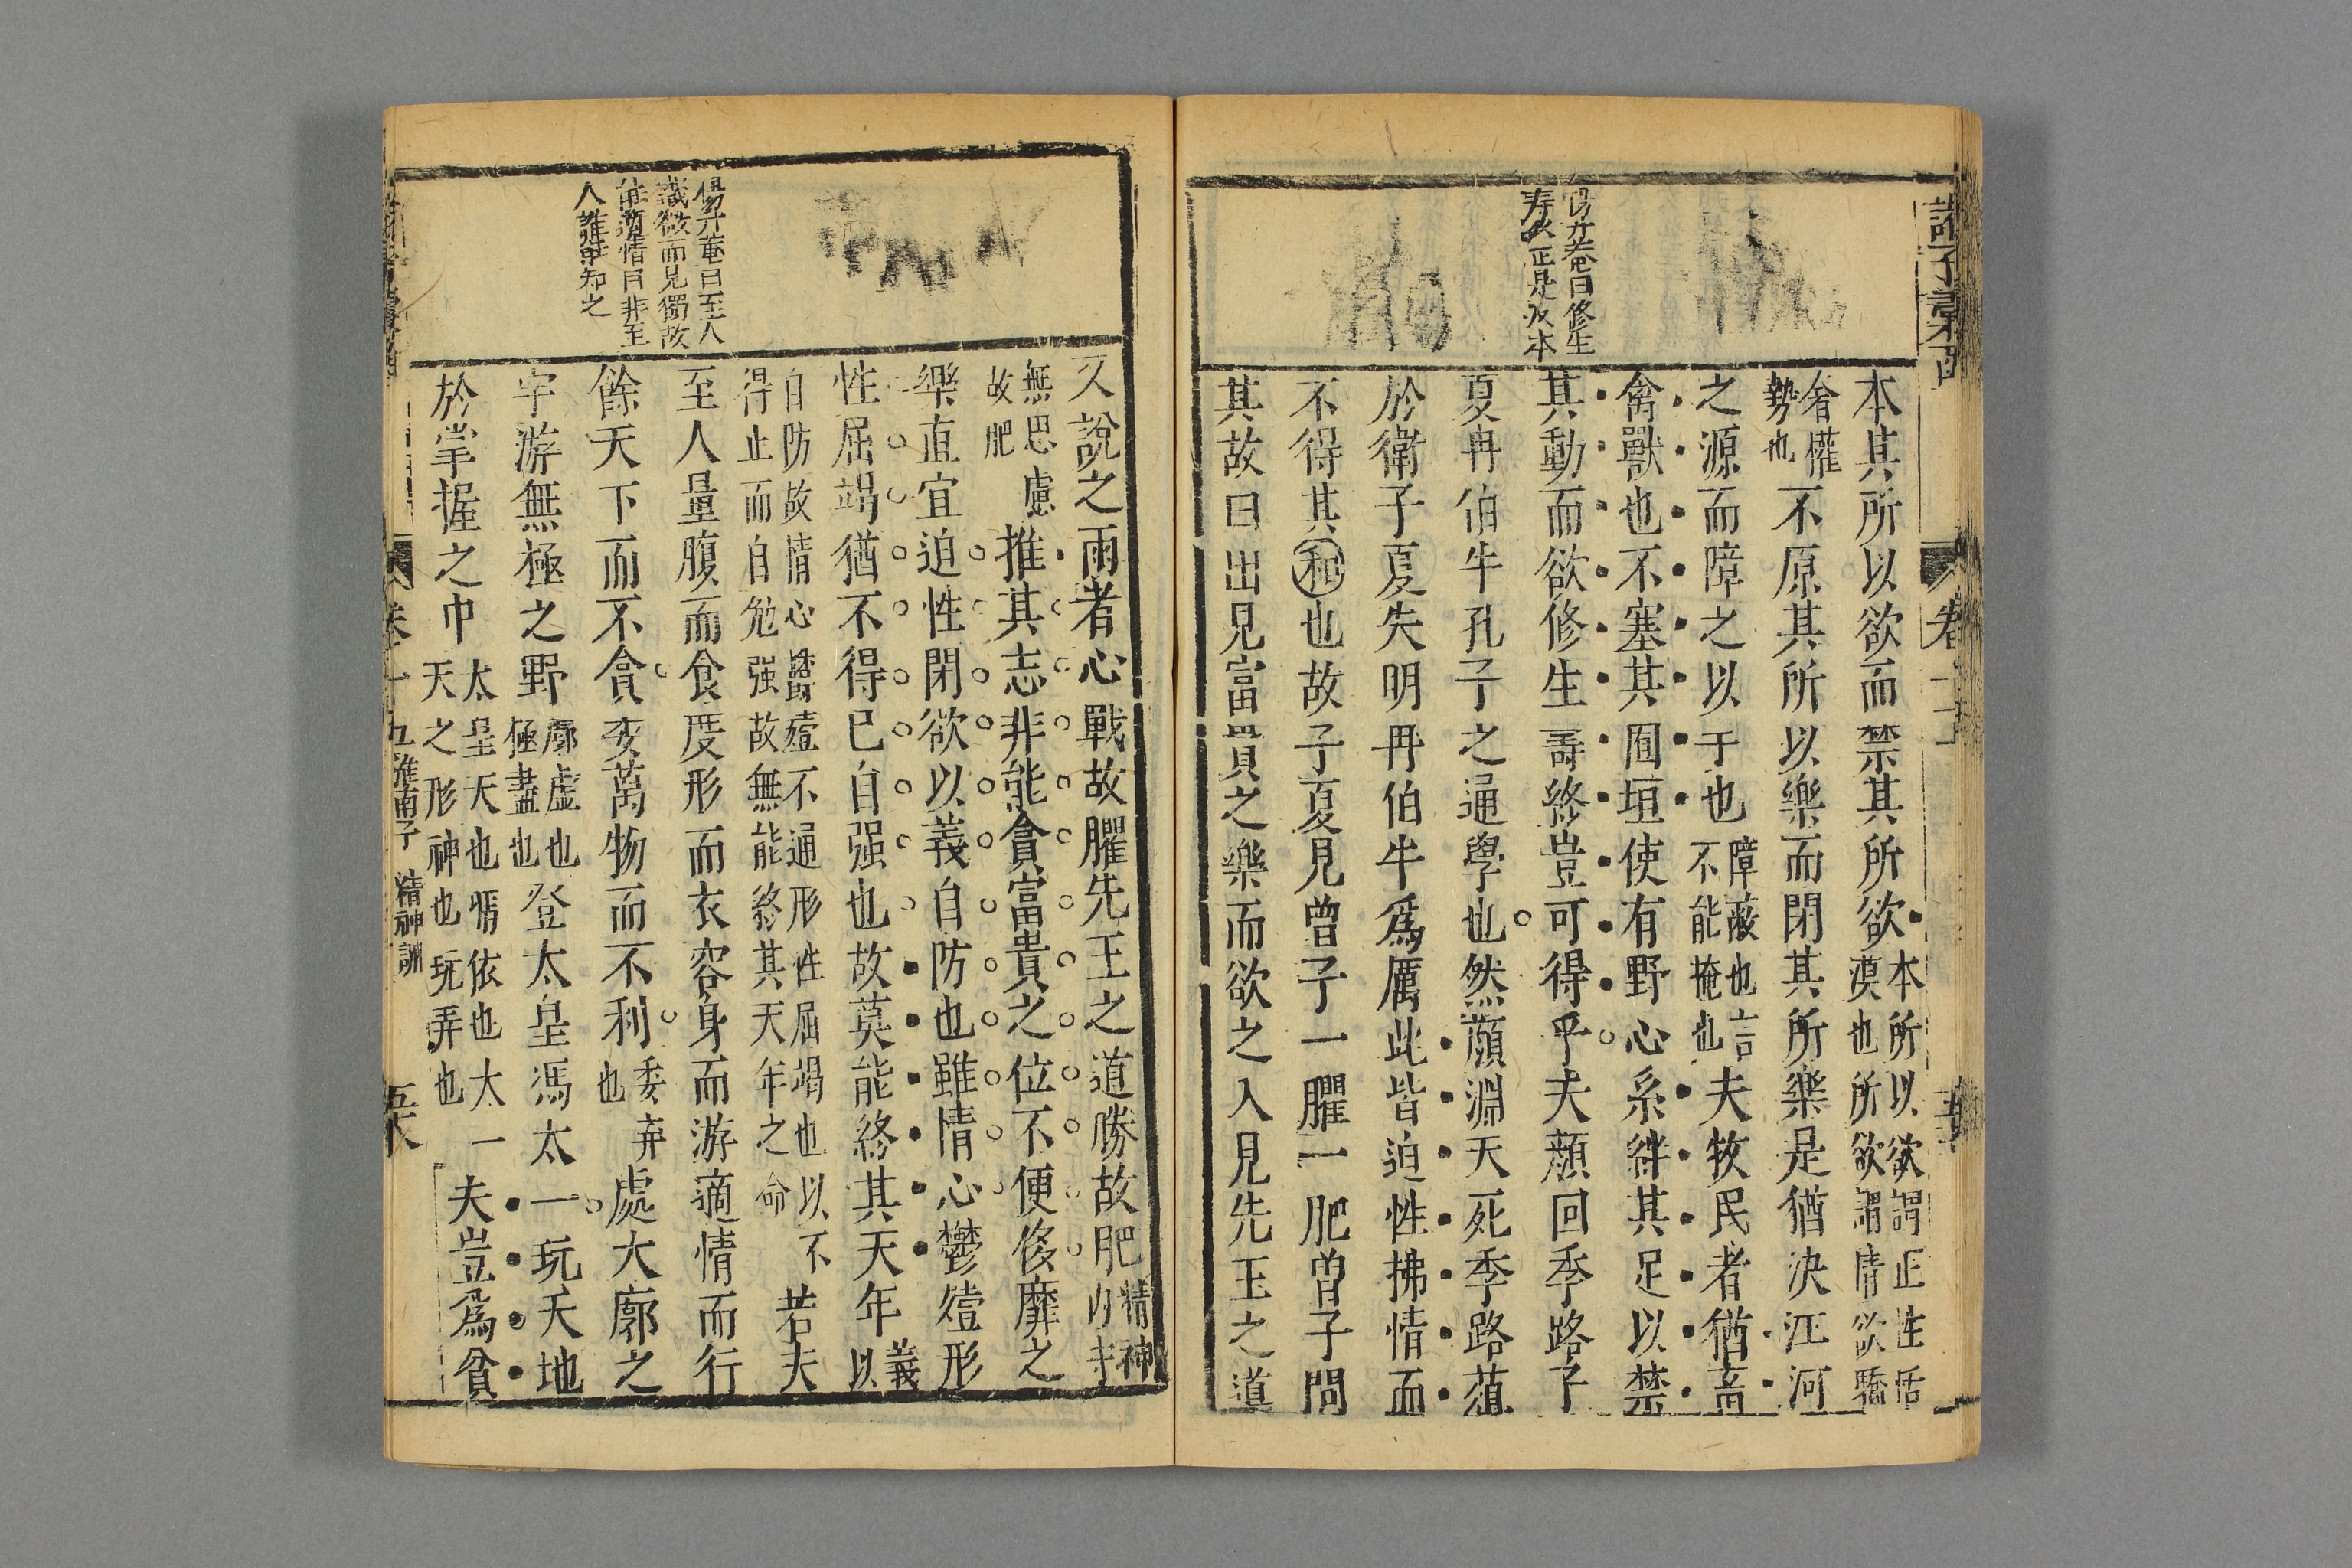 諸子彙函
卷二十一
楊升菴曰修生
寿终正是反本
本其所以欲而禁其所欲本所以欲謂正性恬
漠也所欲謂情欲驕
奢權
勢也不原其所以樂而閉其所樂是猶決江河
之源而障之以手也障蔽也言
不能掩也夫牧民者猶畜
禽獸也不塞其囿垣使有野心系絆其足以禁
其動而欲修生壽終豈可得乎夫顏回季路子
夏冉伯牛孔子之通學也然顏淵夭死季路葅
於衛子夏失明冉伯牛爲厲此皆迫性拂情而
不得其和也故子夏見曾子一臞一肥曾子問
其故曰出見富貴之樂而欲之入見先王之道
楊升菴曰至人
識欲而見獨故
能適情自非至
人誰知之
又說之兩者心戰故臞先王之道勝故肥精神
内守
無思慮
故肥推其志非能貪富貴之位不便侈靡之
樂直宜迫性閉欲以義自防也雖情心鬱殪形
性屈竭猶不得已自强也故莫能終其天年義
以
自防故情心鬱殪不通形性屈竭也以不
得止而自勉强故無能終其天年之命若夫
至人量腹而食度形而衣容身而游適情而行
餘天下而不貪委萬物而不利委弃
也處大廓之
宇游無極之野廓虛也
極盡也登太皇馮太一玩天地
於掌握之中太皇天也馮依也太一
天之形神也玩弄也夫豈爲貧
卷
淮南子 精神訓